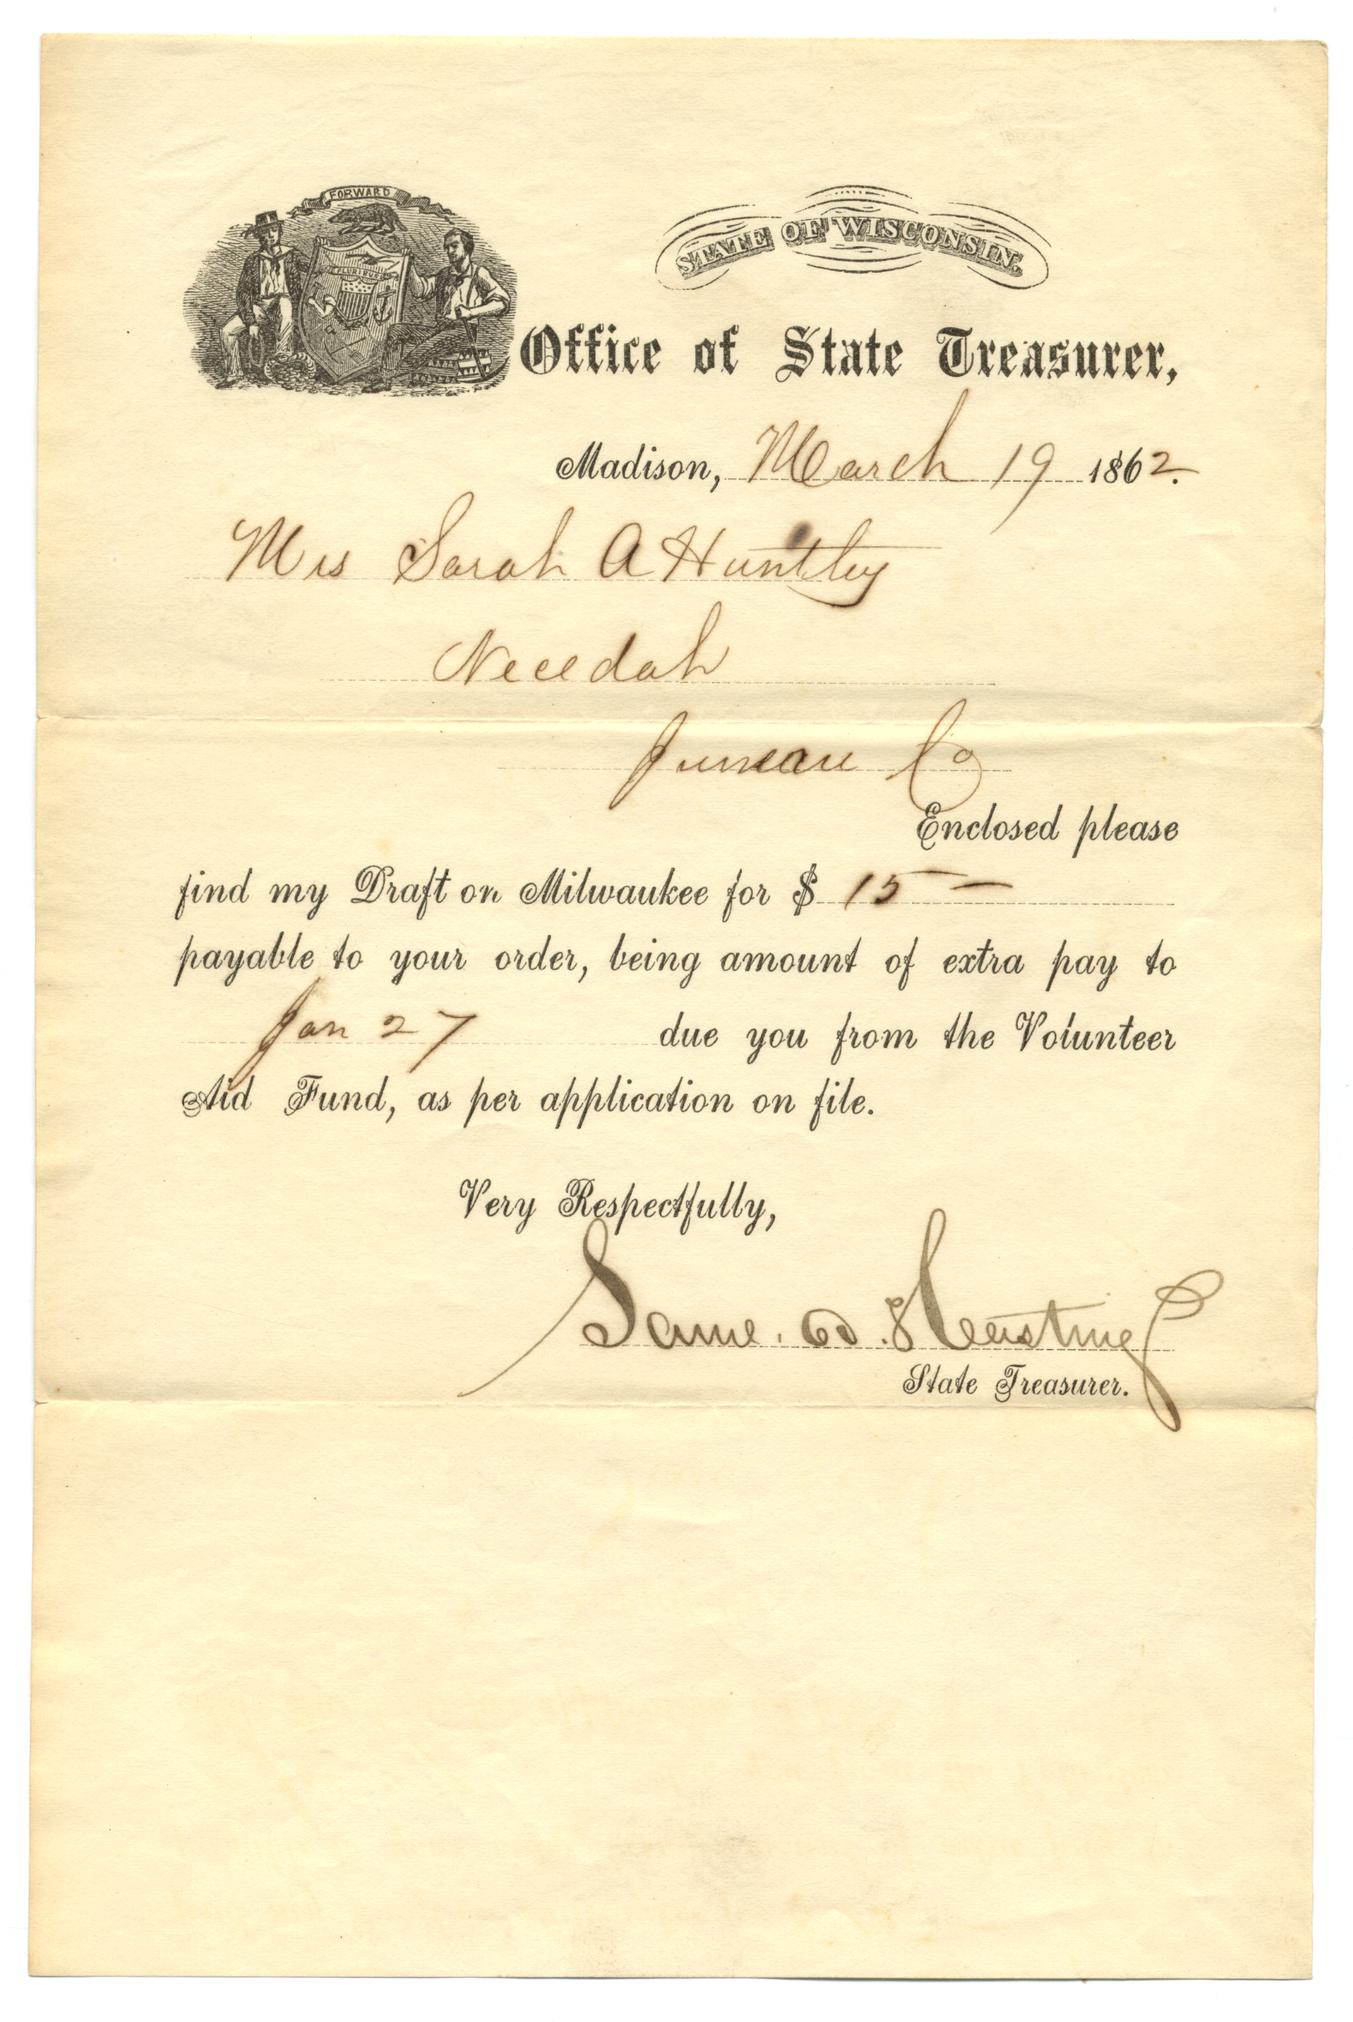 FORWARD
E PLURIBUS UNUM
STATE OF WISCONSIN.
Office of State Treasurer,
Madison, March 19 1862.
Mrs Sarah A Huntley
Necedah
Juneau Co
Enclosed please
find my Draft on Milwaukee for $ 15 —
payable to your order, being amount of extra pay to
Jan 27 due you from the Volunteer
Aid Fund, as per application on file.
Very Respectfully,
Saml. D. Hastings
State Treasurer.